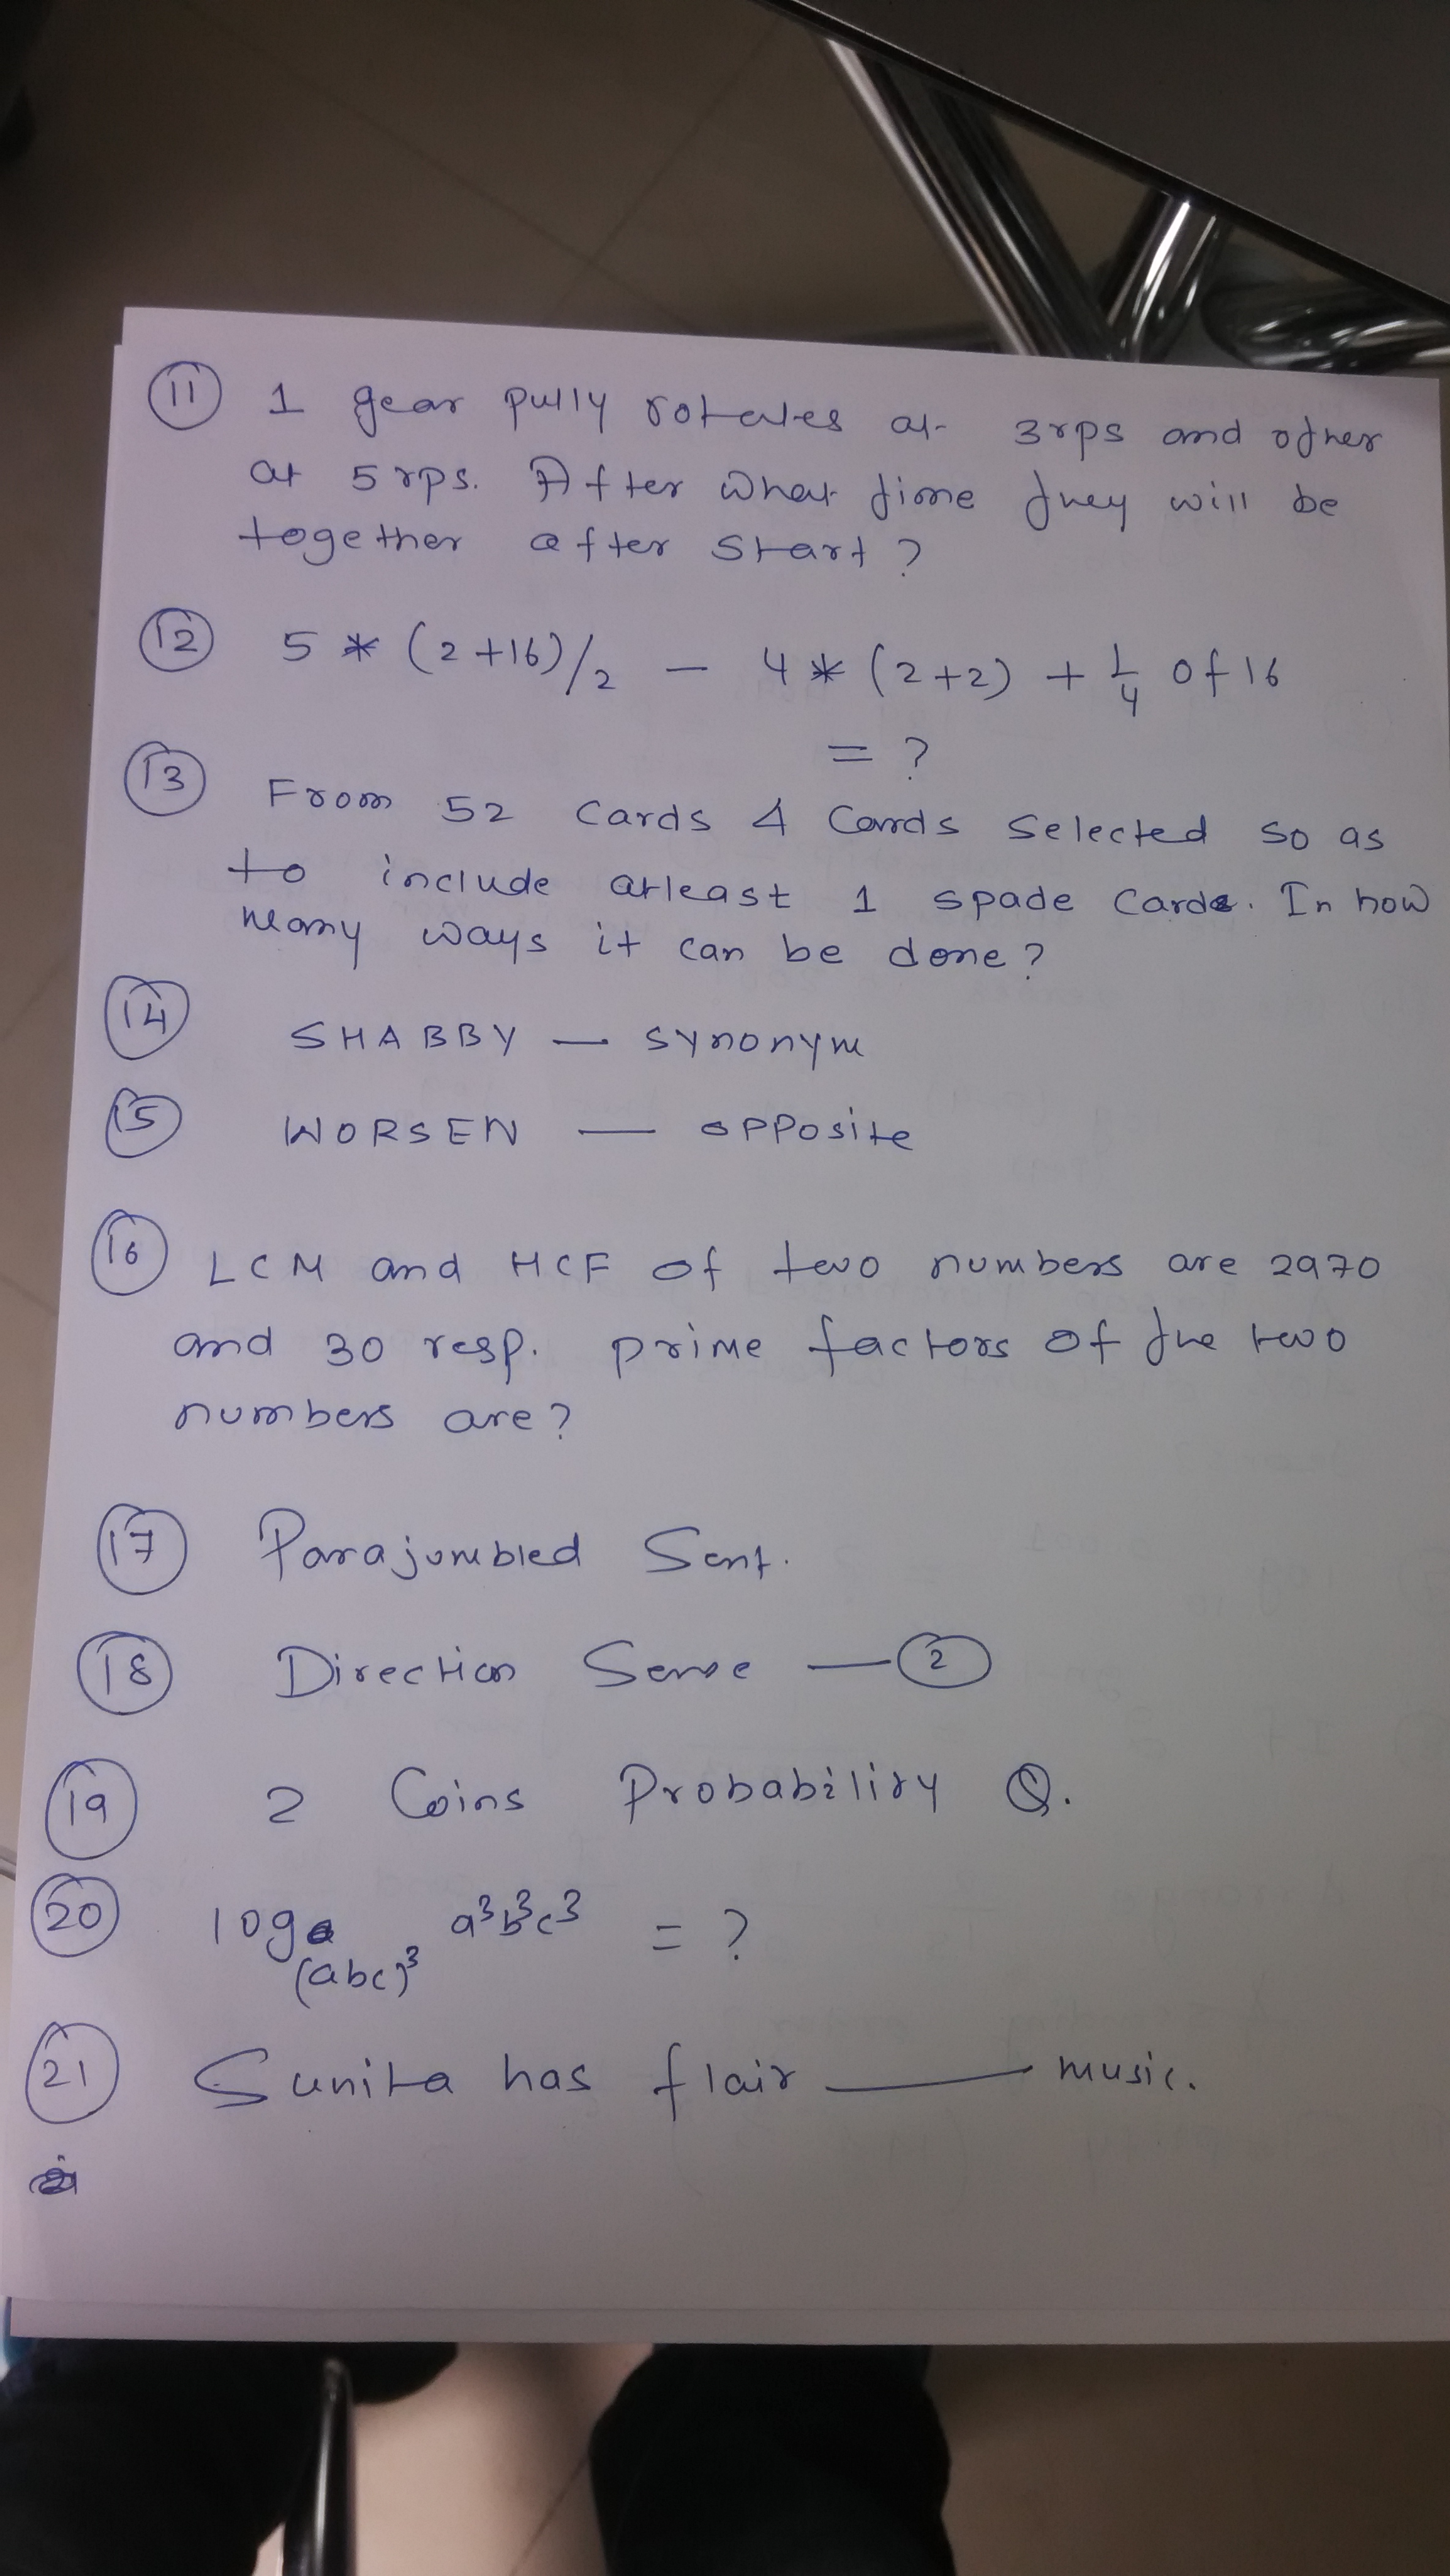 11 1 gear pully rotates at 3rps and other
at 5 rps. After what time they will be
together after start?
12 5 * (2+16)/2 - 4 * (2+2) + 1/4 of 16
= ?
13 From 52 cards 4 cards selected so as
to include atleast 1 spade card. In how
many ways it can be done?
14 SHABBY — synonym
15 WORSEN — opposite
16 LCM and HCF of two numbers are 2970
and 30 resp. prime factors of the two
numbers are?
17 Parajumbled Sent.
18 Direction Sense — 2
19 2 Coins Probability Q.
20 log (abc)³ a³b³c³ = ?
21 Sunita has flair ____ music.